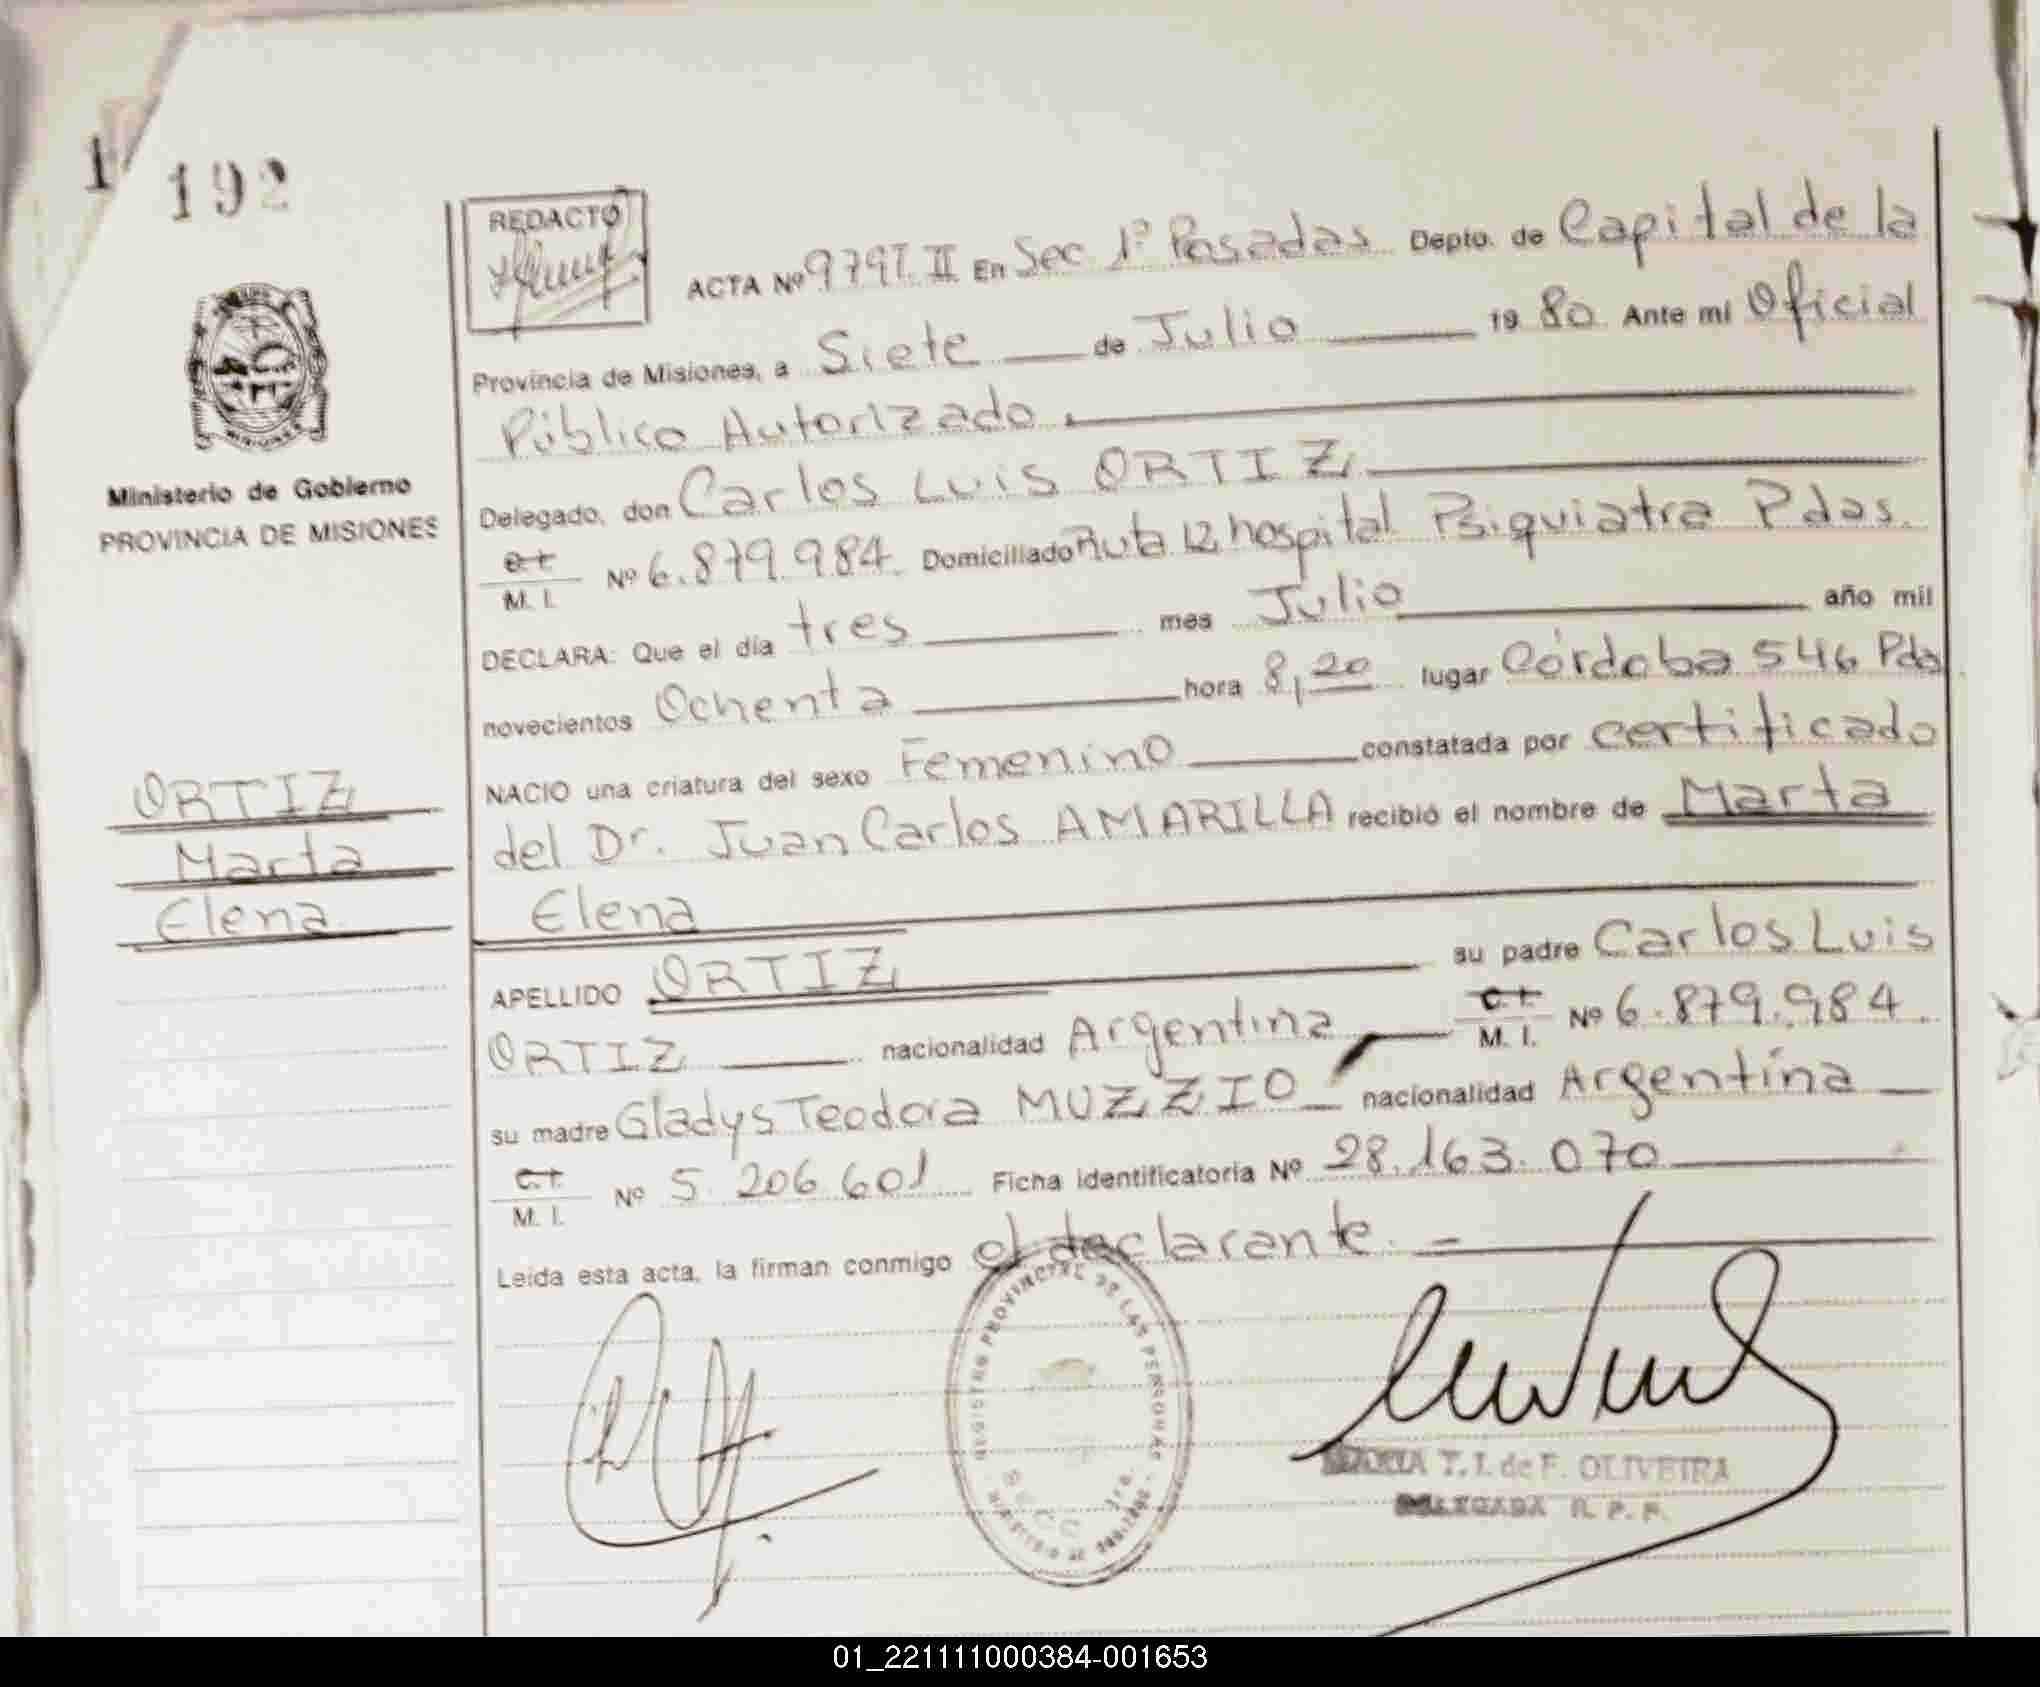 192
REDACTO
ACTA Nº 979 T. II En Sec 1ª Posadas Depto. de Capital de la
Provincia de Misiones, a Siete de Julio 1980 Ante mi Oficial
Público Autorizado
Delegado, don Carlos Luis ORTIZ
C.I. M. I. Nº 6.879.984 Domiciliado Ruta 12 hospital Psiquiatra Pdas.
DECLARA: Que el día tres mes Julio año mil
novecientos Ochenta hora 8,20 lugar Córdoba 546 Pdas
NACIO una criatura del sexo Femenino constatada por certificado
del Dr. Juan Carlos AMARILLA recibió el nombre de Marta
Elena
APELLIDO ORTIZ su padre Carlos Luis
ORTIZ nacionalidad Argentina C.I. M. I. Nº 6.879.984
su madre Gladys Teodora MUZZIO nacionalidad Argentina
C.I. M. I. Nº 5.206.601 Ficha identificatoria Nº 28.163.070
Leída esta acta, la firman conmigo el declarante.
MISIONES
Ministerio de Gobierno
PROVINCIA DE MISIONES
ORTIZ
Marta
Elena
REGISTRO PROVINCIAL DE LAS PERSONAS
MARIA T. I. de F. OLIVEIRA
DELEGADA R. P. P.
01_221111000384-001653